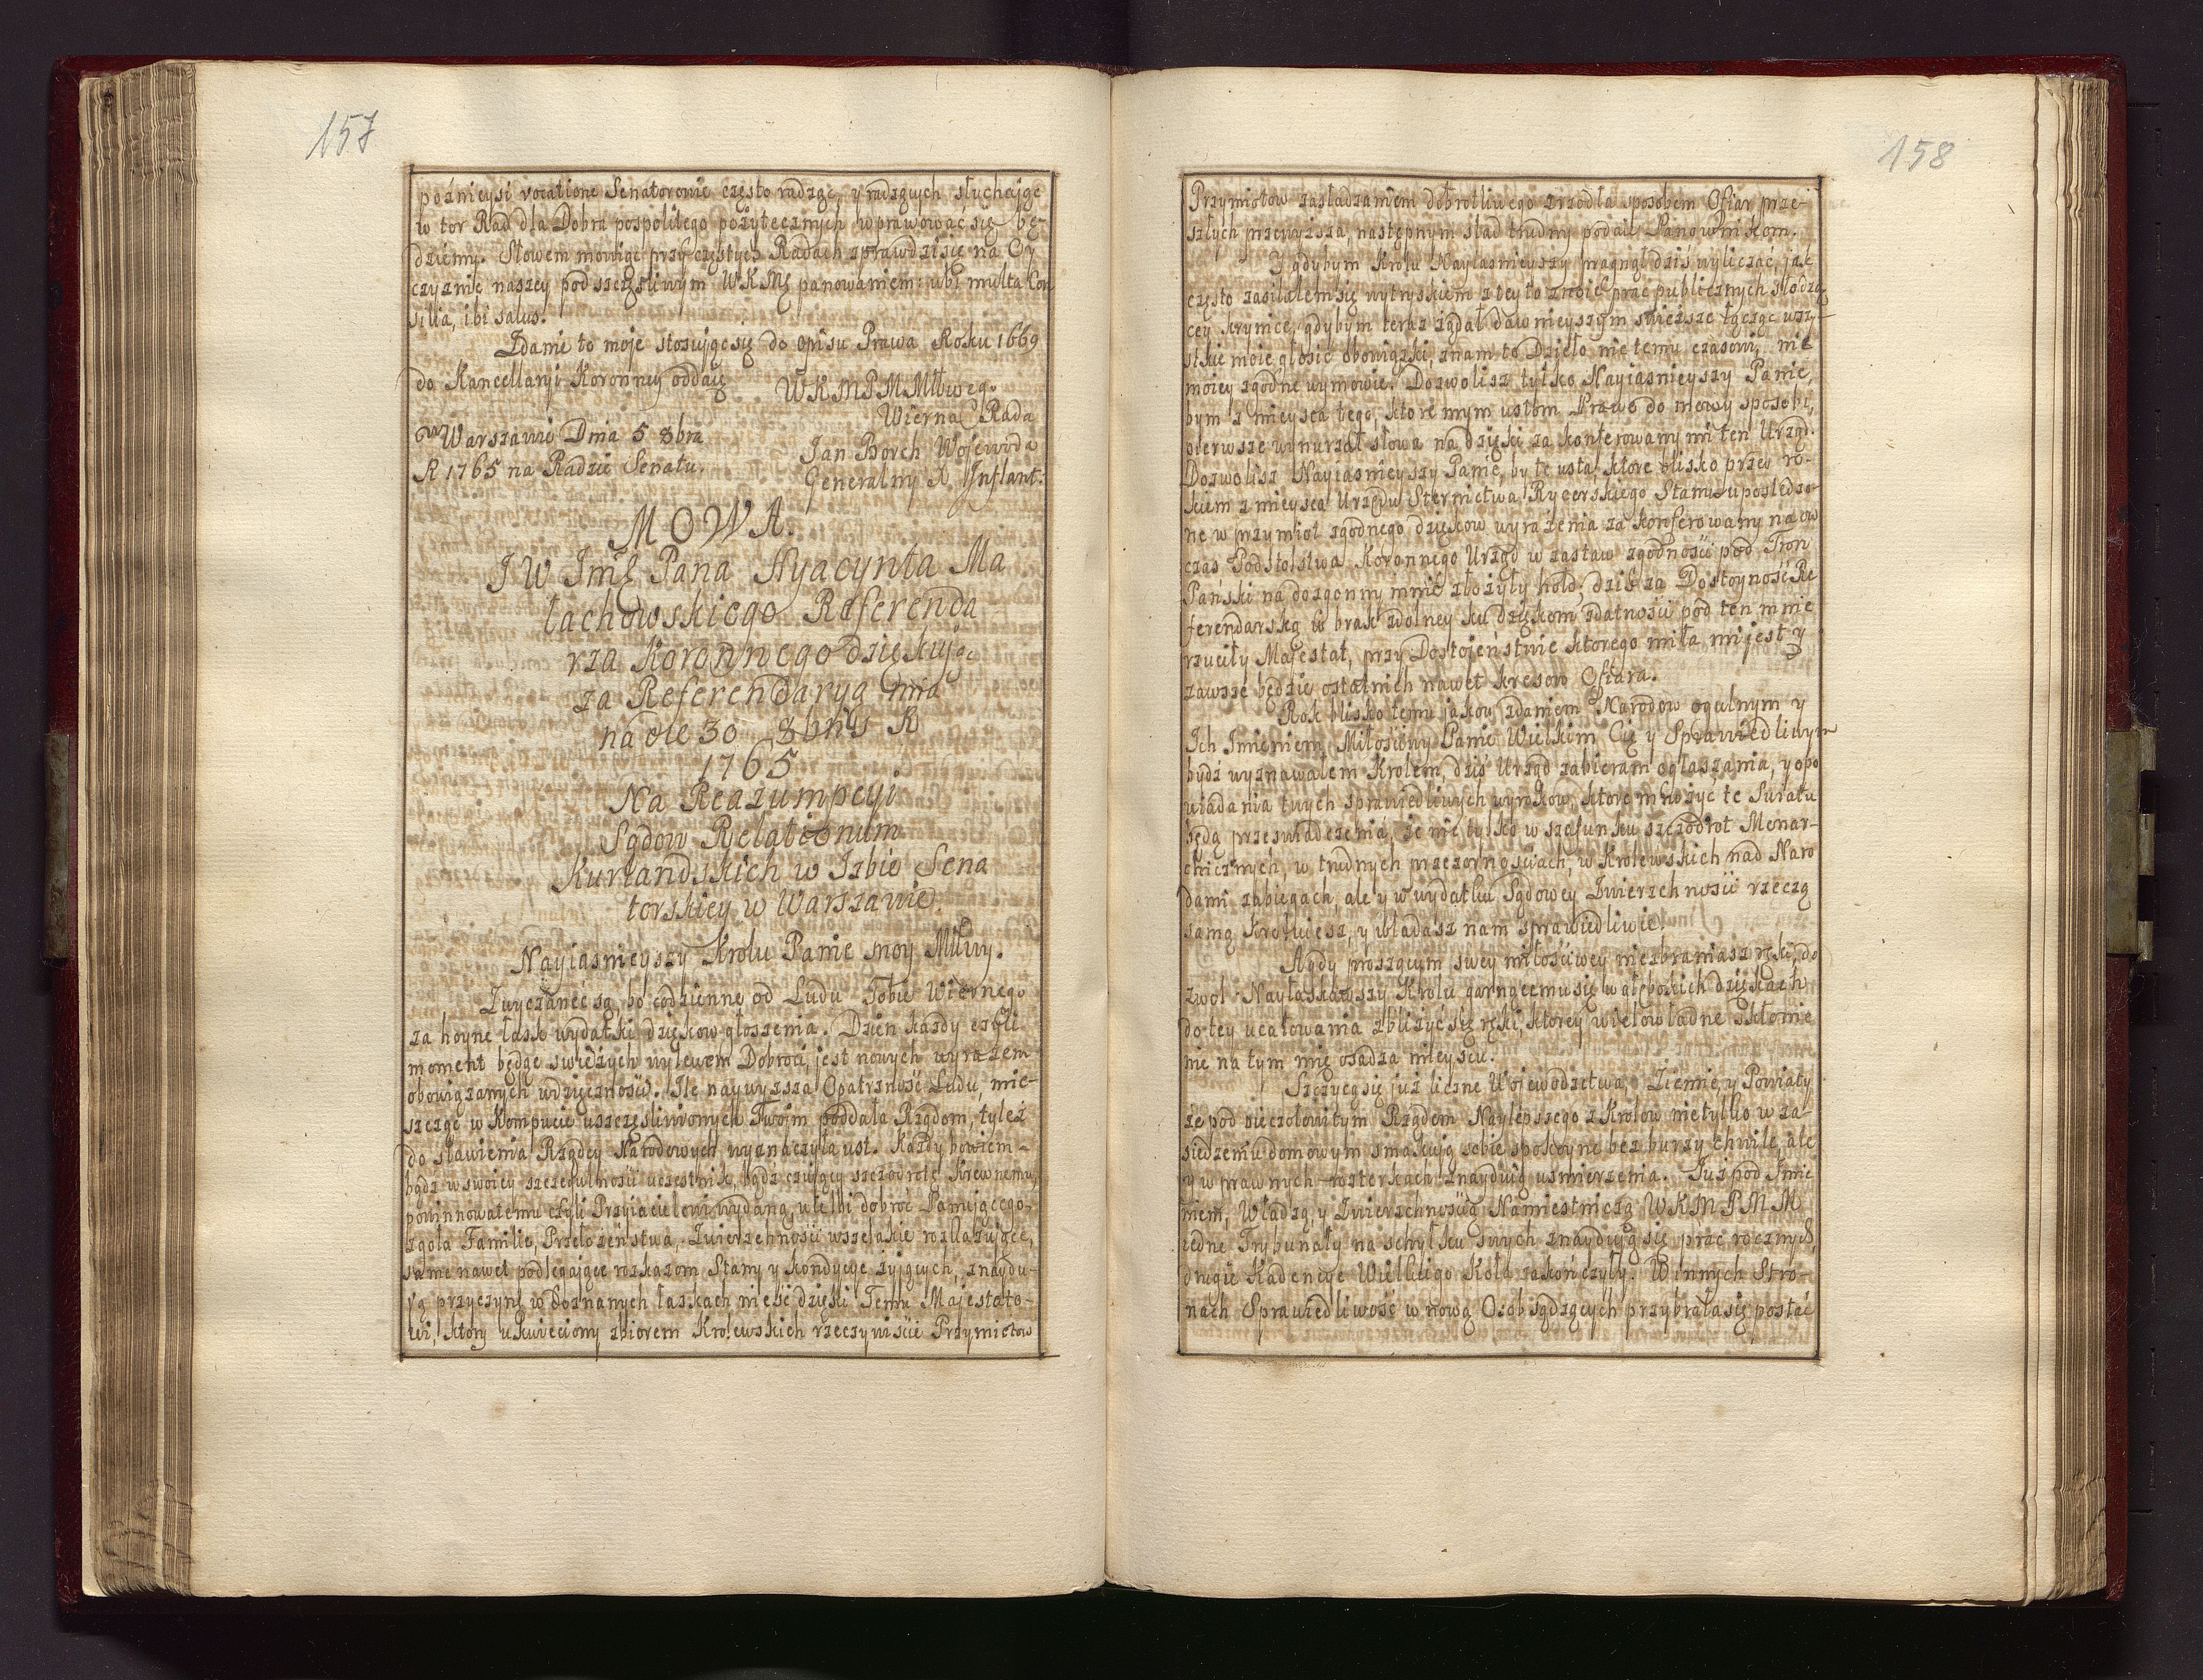 157
poźnieysi vocatione Senatorowie często radząc, y radzących słuchaiąc
w tor Rad dla Dobra pospolitego pożytecznych wprawować się bę-
dziemy. Słowem mowiąc przy częstych Radach sprawdzi się na Oy
czyznie naszey pod szczęśliwym WKMci panowaniem: ubi multa Con
silia, ibi salus.
Zdanie to moje stosując się do opisu Prawa Roku 1669
do Kancellaryi Koronney oddaię
WKMPMMłłwego
Wierna Rada
w Warszawie Dnia 5 8bra
Jan Borch Wojewoda
R 1765 na Radzie Senatu.
Generalny X. Inflant:
MOWA.
JW Jmci Pana Hyacynta Ma
łachowskiego Referenda
rza Koronnego dziękując
za Referendaryą mia
na die 30 8bris R
1765
Na Reasumpcyi
Sądow Relationum
Kurlandskich w Izbie Sena
torskiey w Warszawie.
Nayiasnieyszy Krolu Panie moy Miłłwy.
Zwyczayne są bo codzienne od Ludu Tobie Wiernego
za hoyne łask wydatki dziękow głoszenia. Dzien każdy czyli
moment będąc swieżych wylewem Dobroci, jest nowych wyrazem
obowiązanych wdzięcznosci. Ile naywyzsza Opatrzność Ludu, mie-
szcząc w Kompucie uszczęśliwionych Twoim poddała Rządom, tyleż
do sławienia Rządcy Narodowych wyznaczyła ust. Każdy bowiem
bądz w swoiey szczegulnosci uczestnik, bądź czuiący szczodrotę Krewnemu,
powinnowatemu czyli Przyiacielowi wydaną, wielbi dobroć Panuiącego,
zgoła Familie, Przełożeństwa, Zwierzchnosci wszelakie rozkazuiące,
same nawet podlegaiące rozkazom Stany y kondycye żyiących, znaydu-
ią przyczynę w doznanych łaskach nieść dzięki Temu Majestato-
wi, ktory ukwiecony zbiorem Krolewskich rzeczywiscie Przymiotow
158
Przymiotow zasładzaniem dobrotliwego zrzodła sposobem Ofiar prze-
szłych przewyzsza, następnym slad trudny podaie Panownikom.
Y gdybym Krolu Nayiasnieyszy pragnął dziś wyliczać, jak
często zasilałem się wytryskiem z tey to znoie prac publicznych słodzą
cey krynice, gdybym teraz żądał dawnieyszym swieższe łącząc wszy-
stkie moie głosić obowiązki, znam to Dzieło nie temu czasowi, nie
moiey zgodne wymowie. Dozwolisz tylko Nayiasnieyszy Panie,
bym z mieysca tego, ktore mym ustom Prawo do mowy sposobi,
pierwsze wynurzał słowa na dzięki za konferowany mi ten Urząd.
Dozwolisz Nayiasnieyszy Panie, by te usta, ktore blisko przed ro-
kiem z mieysca Urzędu Sternictwa Rycerskiego Stanu upośledzo-
ne w przymiot zgodnego dziękow wyrażenia za konferowany na ow
czas Podstolstwa Koronnego Urząd w zastaw zgodnosci pod Tron
Pański na dozgonny mnie złożyły hołd, dziś za Dostoyność Re
ferendarską w brak zdolney ku dziękom zdatnosci pod ten mnie
rzuciły Majestat, przy Dostojeństwie ktorego miła mi jest y
zawsze będzie ostatnich nawet kresow Ofiara.
Rok blisko temu jakow zdaniem Narodow ogulnym y
Ich Imieniem, Miłościwy Panie Wielkim Cię y Sprawiedliwym
bydź wyznawałem Krolem, dziś Urząd zabieram ogłaszania, y opo
wiadania twych sprawiedliwych wyrokow, ktore mnożyć te Swiatu
będą przeswiadczenia, że nie tylko w szafunku szczodrot Monar-
chicznych, w trudnych przezornościach, w Krolewskich nad Naro
dami zabiegach, ale y w wydatku Sądowey Zwierzchnosci rzeczą
samą Kroluiesz, y władasz nam sprawiedliwie.
A gdy proszącym swey miłościwey niezbraniasz ręki, do
zwol Nayłaskawszy Krolu garnącemu się w głębokich dziękach
do tey ucałowania zbliżyć się ręki, ktorey wielowładne skłonie
nie na tym mię osadza mieyscu.
Szczycą się już liczne Wojewodztwa, Ziemie, y Powiaty
że pod pieczołowitym Rządem Naylepszego z Krolow nie tylko w za-
siedzemu domowym smakuią sobie spokoyne bez burzy chwile, ale
y w prawnych rosterkach znayduią usmierzenia. Już pod Imie
niem, Władzą, y Zwierzchnoscią Namiestniczą WKMPMM
iedne Trybunały na schyłku swych znayduią się prac rocznych,
drugie Kadencye Wielkiego Koła zakończyły. W innych Stro-
nach Sprawiedliwość w nową Osob sądzących przybrała się postać